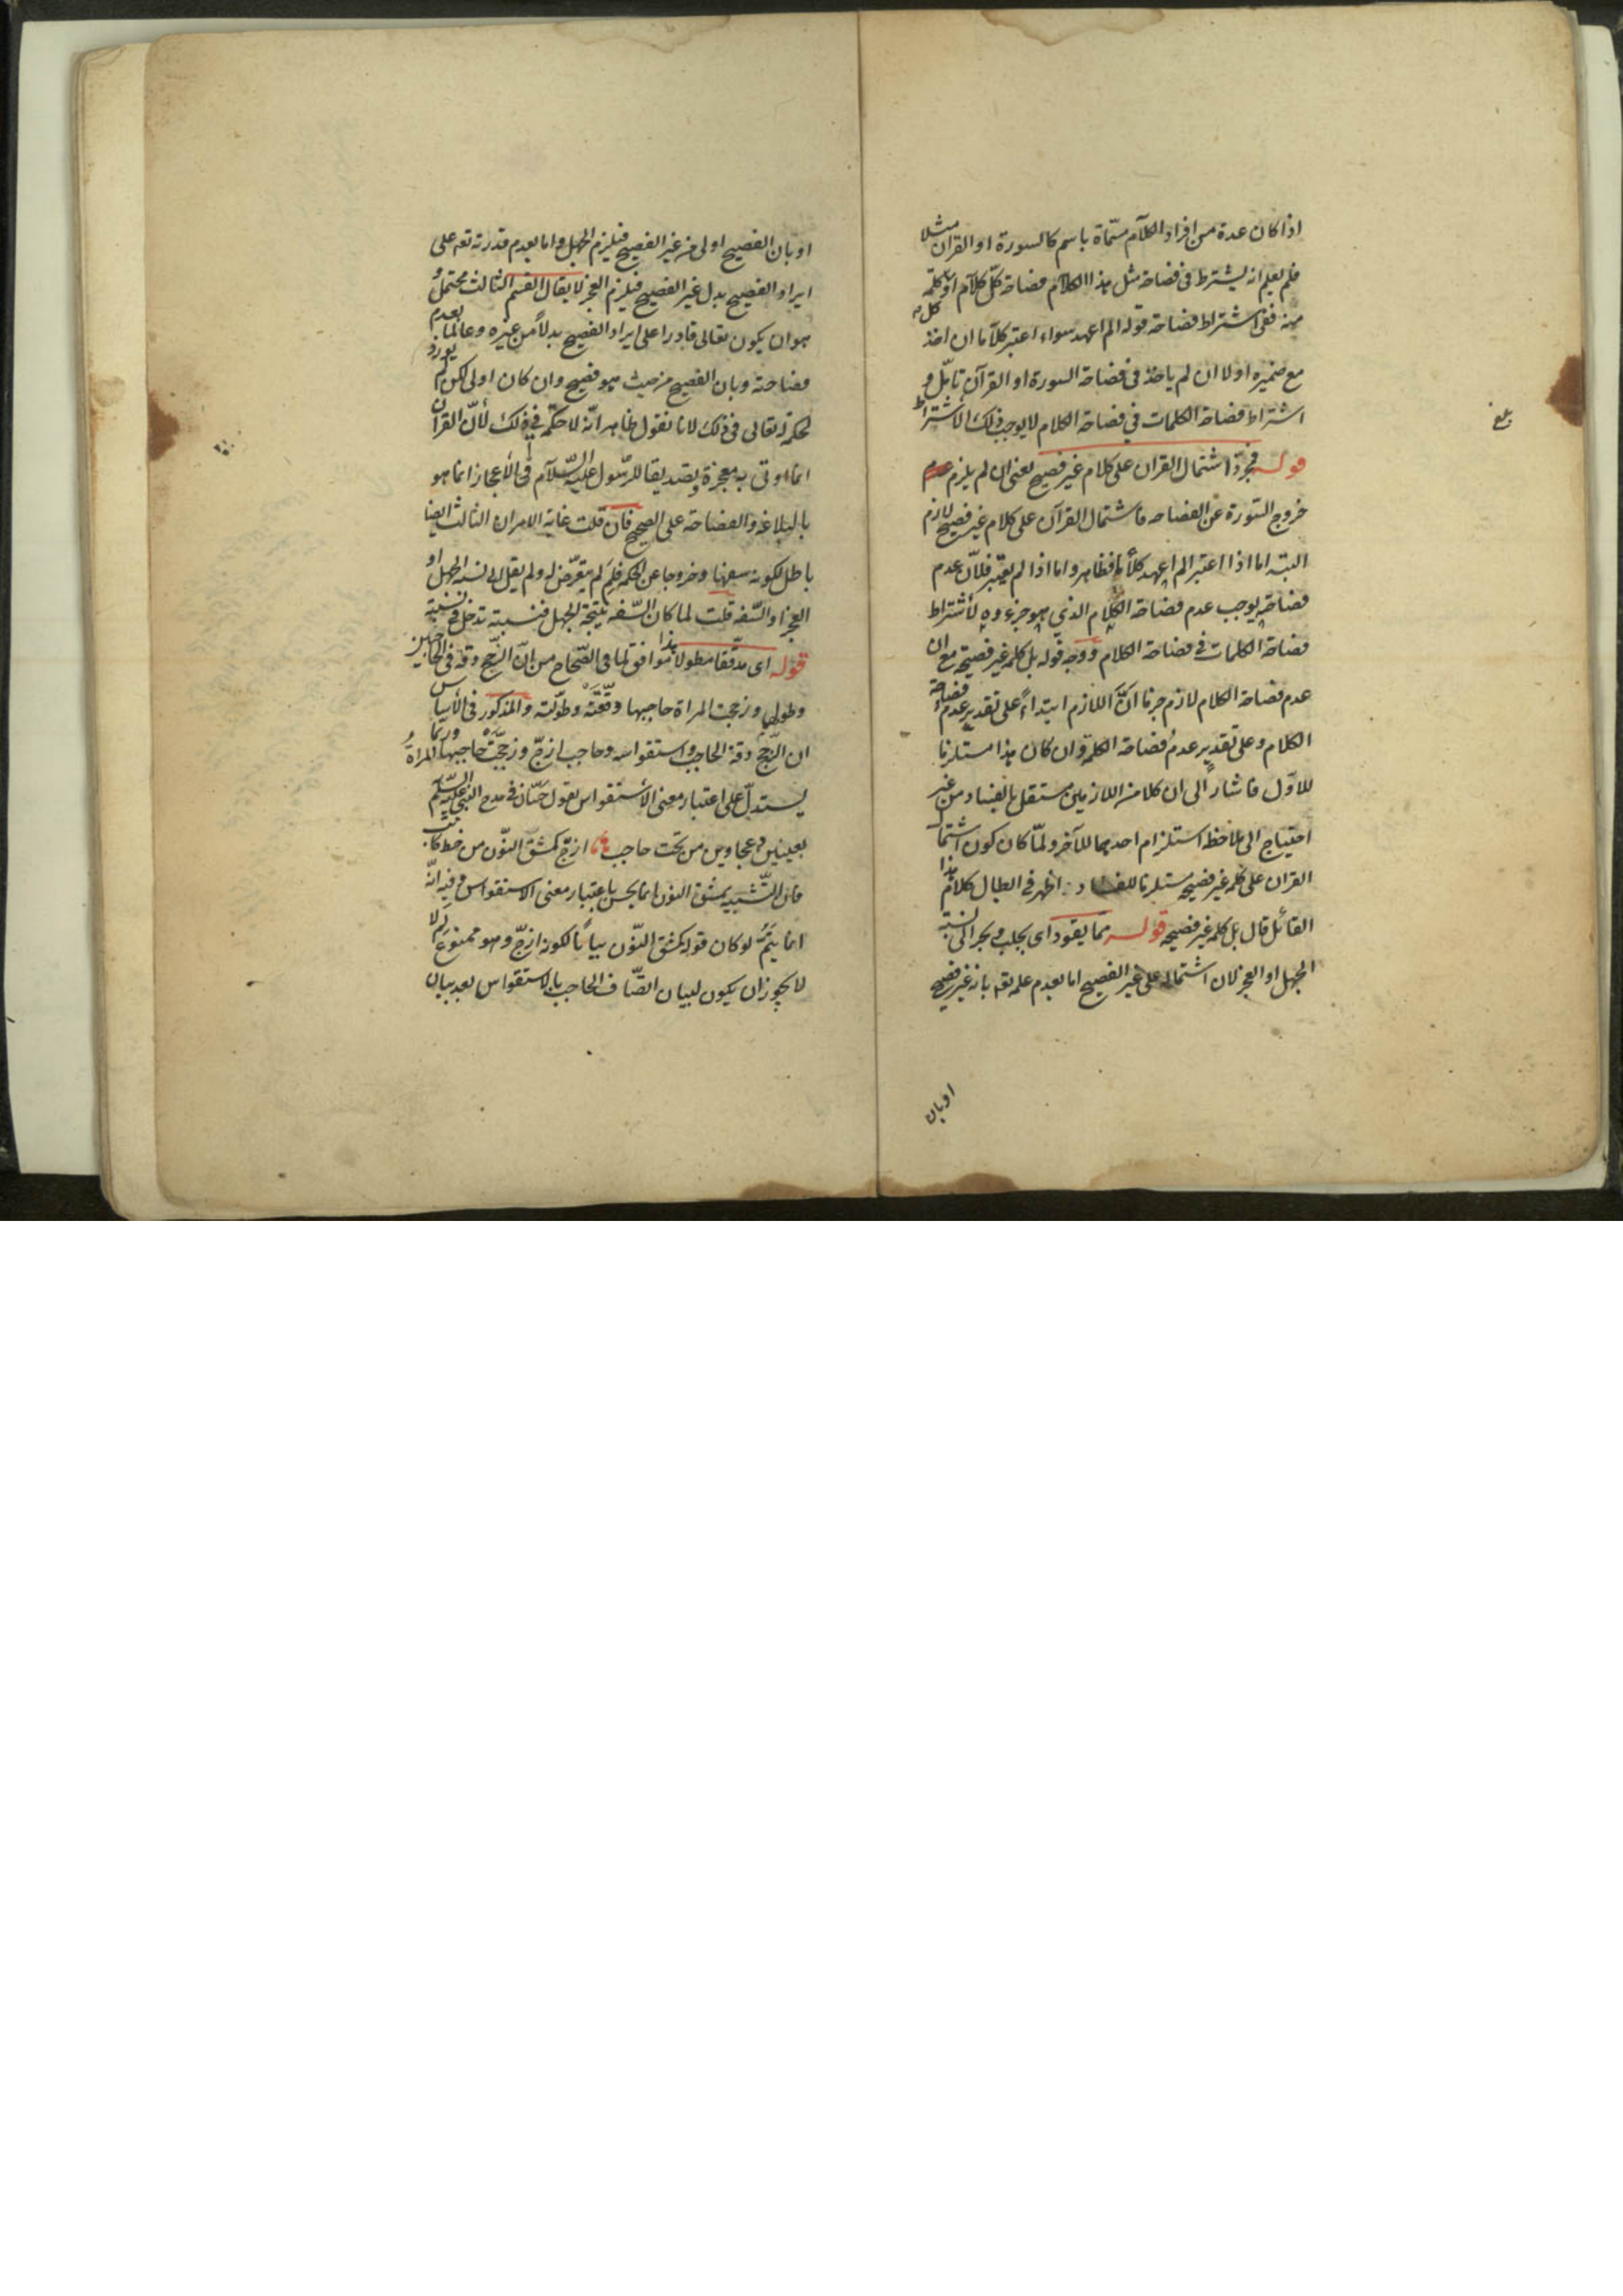 اذا كان عدة من افراد الكلام مسمّاة باسم كالسورة او القرآن مثلا
فلم يعلم انه يشترط فى فصاحة مثل هذا الكلام فصاحة كلّ كلام او كلّ كلمة
منه ففى اشتراط فصاحة قوله الم اعهد سواء اعتبر كلاما ان اخذ
مع ضميره اولا ان لم ياخذ فى فصاحة السورة او القرآن تأمّل و
اشتراط فصاحة الكلمات فى فصاحة الكلام لا يوجب ذلك الاشتراط
قوله فمجرد اشتمال القران على كلام غير فصيح يعنى ان لم يلزم عدم
خروج السّورة عن الفصاحه فاشتمال القرآن على كلام غير فصيح لازم
البتة اما اذا اعتبر الم اعهد كلاما فظاهر واما اذا لم يعتبر فلانّ عدم
فصاحته يوجب عدم فصاحة الكلام الذى هو جزءوه لأشتراط
فصاحة الكلمات فى فصاحة الكلام ووجه قوله بل كلمة غير فصيحة مع ان
عدم فصاحة الكلام لازم جزما انّ اللازم ابتداءً على تقدير عدم فصاحة
الكلام وعلى تقدير عدم فصاحة الكلمة وان كان هذا مستلزما
للاوّل فاشار الى ان كلا من اللازمين مستقل بالفساد من غير
احتياج الى ملاحظة استلزام احدهما للآخر ولمّا كان كون اشتمال
القران على كلمة غير فصيحة مستلزما للفساد اظهر فى ابطال كلام هذا
القائل قال بل كلمة غير فصيحة قوله مما يقود اى يجلب ويجر الى نسبة
الجهل او العجز لان اشتماله على غير الفصيح اما لعدم علمه تعه بانه غير فصيح
اوبان
او بان الفصيح اولى من غير الفصيح فيلزم الجهل واما لعدم قدرته تعه على
ايراد الفصيح بدل غير الفصيح فيلزم العجز لا يقال القسم الثالث محتمل و
هو ان يكون تعالى قادرا على ايراد الفصيح بدلاً من غيره وعالما بعدم
فصاحته وبان الفصيح من حيث هو فصيح وان كان اولى لكن لم يورد
لحكمة له تعالى فى ذلك لانا نقول ظاهر انّه لا حكمة فى ذلك لأنّ القرآن
انما اوتى به معجزة وتصديقا للرّسول عليه السّلام فى الأعجاز انما هو
بالبلاغة والفصاحة على الصحيح فان قلت غاية الامر ان الثالث ايضا
باطل لكونه سفها وخروجا عن الحكمة فلم لم يتعرّض له ولم يقل الى نسبة الجهل او
العجز او السّفه قلت لما كان السّفه نتيجة الجهل فنسبته تدخل فى نسبته
قوله اى مدقّقا مطولا هذا موافق لما فى الصّحاح من انّ الزّجج دقة فى الحاجبين
وطولها وزججت المراة حاجبها دقّقته وطوّلته والمذكور فى الأساس
ان الزّجج دقة الحاجب واستقواسه وحاجب ازجّ وزجّجت المراة حاجبها وربّما
يستدلّ على اعتبار معنى الأستقواس بقول حسّان فى مدح النبى عليه السّلام
بعينين دعجاوين من تحت حاجب ازجّ كمشق النّون من خط كاتب
فان التّشبيه بمشق النون انما يحسن باعتبار معنى الاستقواس وفيه انّه
انما يتمّ لو كان قوله كمشق النّون بياناً لكونه ازجّ وهو ممنوع لم لا
لا يجوز ان يكون لبيان اتّصاف الحاجب بالاستقواس بعد بيان